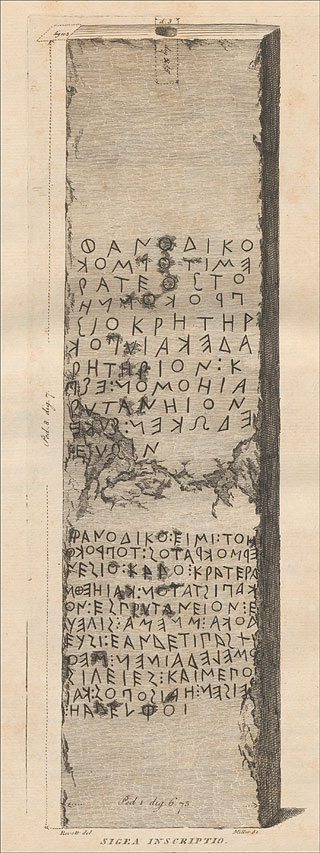 ped. 3
ΦΑΝΟΔΙΚΟ
ΕΜΙΤΟΡΜΟΚ
ΡΑΤΕΟΣΤΟ
ΠΡΟΚΟΝΝΗ
ΣΙΟΚΡΗΤΗΡ
ΑΔΕΚΑΙΥΠΟΚ
ΡΗΤΗΡΙΟΝ:Κ
ΑΙΗΟΜΟΝ:ΕΣΠ
ΡΥΤΑΝΗΙΟΝ
ΕΔΩΚΕΝ:ΣΥΚΕ
ΕΥΣΙΝ
ΦΑΝΟΔΙΚΟ:ΕΙΜΙ:ΤΟΗ
ΕΡΜΟΚΡΑΤΟΣ:ΤΟΠΡΟΚΟ
ΝΕΣΙΟ:ΚΑΓΟ:ΚΡΑΤΕΡΑ
ΚΑΠΙΣΤΑΤΟΝ:ΚΑΙΗΕΘΜ
ΟΝ:ΕΣΠΡΥΤΑΝΕΙΟΝ:Ε
ΔΟΚΑ:ΜΝΕΜΑ:ΣΙΓΕΥ
ΕΥΣΙ:ΕΑΝΔΕΤΙΠΑΣΧ
Ο:ΜΕΛΕΔΑΙΝΕΝ:ΜΕΟ
ΣΙΓΕΙΕΣ:ΚΑΙΜΕΠΟ
ΕΙΣΕΝ:ΗΑΙΣΟΠΟΣ:ΚΑΙ
:ΗΑΔΕΛΦΟΙ
Ped. 8 dig. 7.
Ped. 1 dig. 6. 75
Revett del
Miller sc
SIGEA INSCRIPTIO.